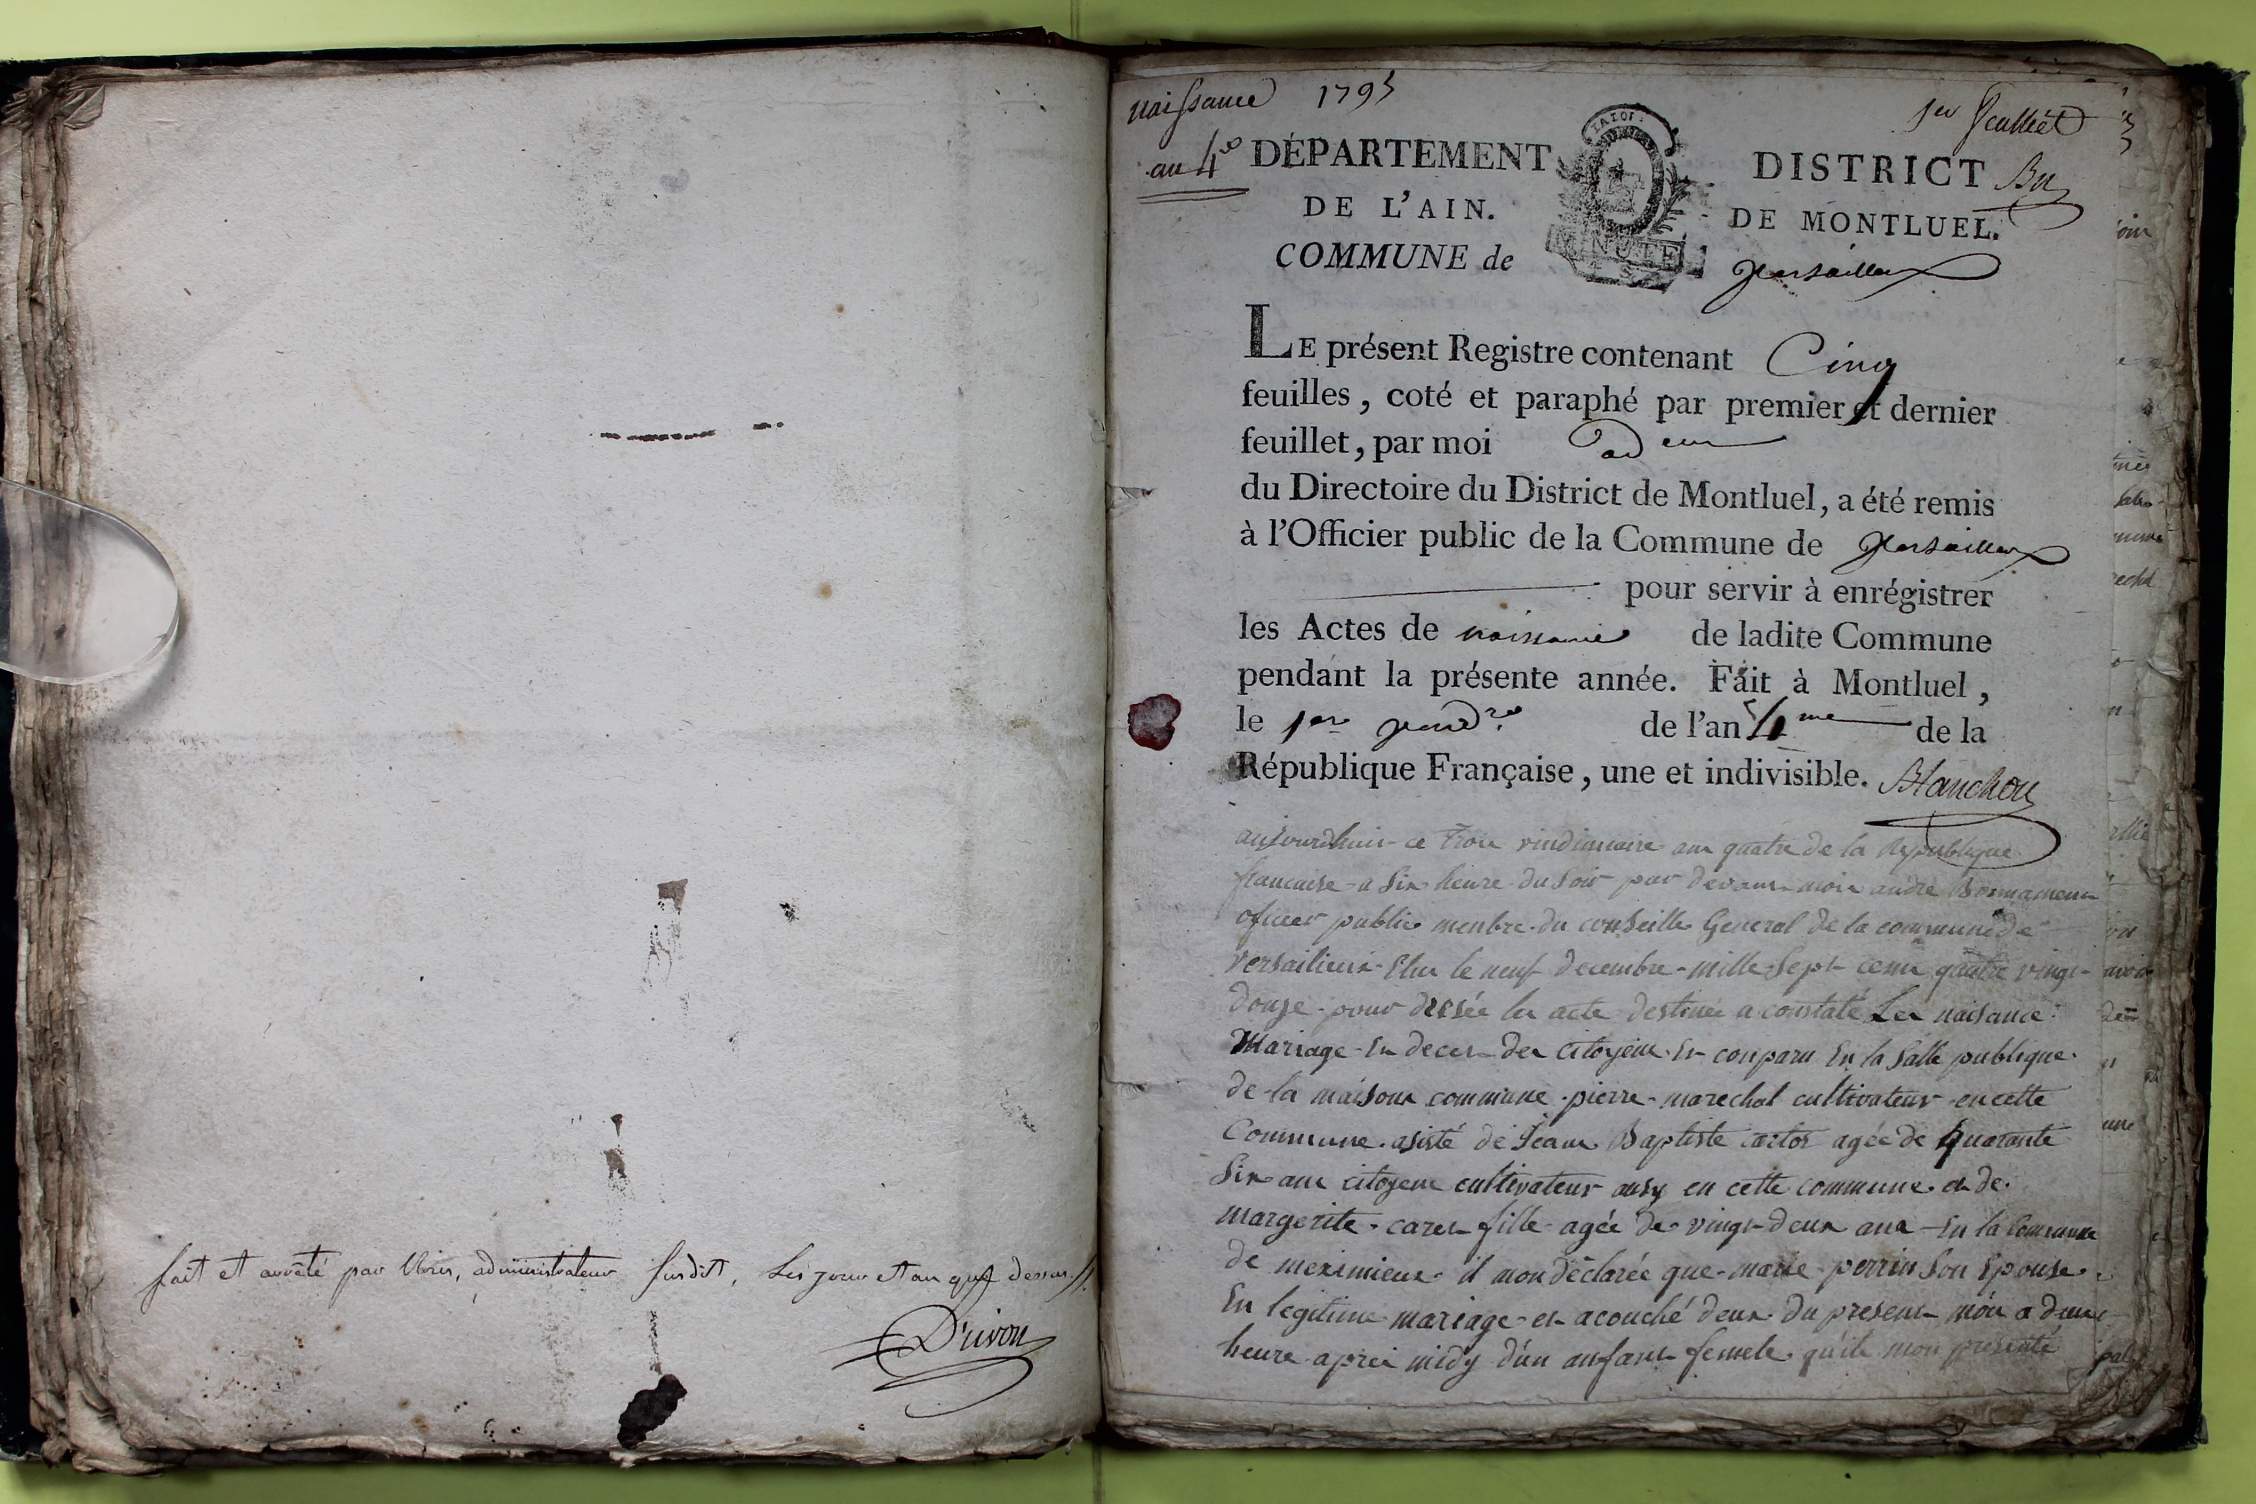 fait et arrêté par Nous, administrateur susdit, les jour et an que dessus.
Drivon
naissance 1795
an 4e
1er feuillet
DÉPARTEMENT
DE L'AIN.
COMMUNE de
MINUTE
DISTRICT
DE MONTLUEL.
Versailleux
LE présent Registre contenant Cinq
feuilles, coté et paraphé par premier et dernier
feuillet, par moi
du Directoire du District de Montluel, a été remis
à l'Officier public de la Commune de Versailleux
pour servir à enrégistrer
les Actes de naissance de ladite Commune
pendant la présente année. Fait à Montluel,
le 1er vend.re de l'an 4me de la
République Française, une et indivisible. Blanchon
aujourdhuis ce trois vindimiaire an quatre de la Republique
francaise a six heure du soir par devant moi andré Bonnamour
oficier public menbre du conseille General de la commune de
versailieux Elu le neuf decembre mille sept cenu quatre vingt
douze pour dressée les acte destinée a constaté Les naisance
Mariage En deces des citoyens Es conparu En la salle publique
de la maison commune pierre marechal cultivateur en cette
Commune asisté de jean Baptiste agée de quarante
six ans citoyens cultivateur ausy en cette commune et de
margerite fille agée de vingt deux ans En la Commune
de meximieux il mon déclarée que marie perrin son Epouse
En legitime mariage es acouché deux du present mois a deux
heure aprei midy d'un anfant femele qu'ile mon presenté